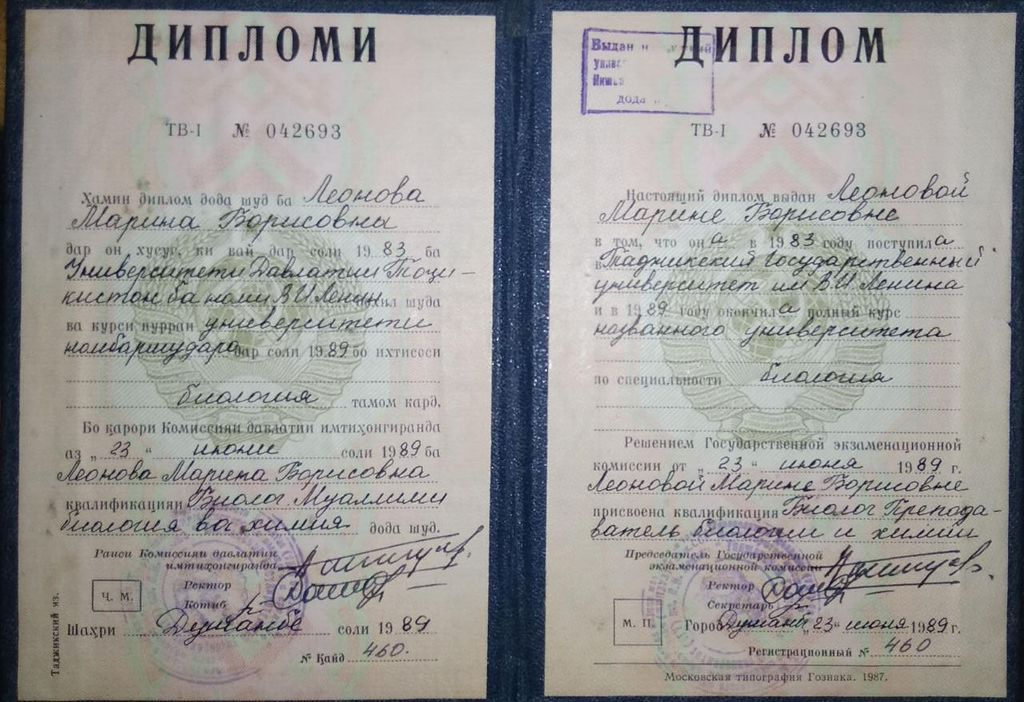 ДИПЛОМИ
ТВ-I № 042693
Хамин диплом дода шуд ба Леонова
Марина Борисовна
дар он хусус, ки вай дар соли 1983 ба
Университети Давлатии Тоҷи-
кистон ба номи В.И.Ленин дохил шуда
ва курси пурраи университети
номбаршударо дар соли 1989 бо ихтисоси
биология тамом кард.
Бо қарори Комиссияи давлатии имтиҳонгиранда
аз „23“ июни соли 1989 ба
Леонова Марина Борисовна
квалификацияи Биолог Муаллими
биология ва химия дода шуд.
Раиси Комиссияи давлатии
имтиҳонгиранда
Ректор
Ч. М.
Котиб
Шаҳри Душанбе соли 1989
№ Қайд 460.
Таджикский яз.
ДИПЛОМ
Выдан
дода
ТВ-I № 042693
Настоящий диплом выдан Леоновой
Марине Борисовне
в том, что она в 1983 году поступила
в Таджикский государственный
университет им В.И.Ленина
и в 1989 году окончила полный курс
названного университета
по специальности биология
Решением Государственной экзаменационной
комиссии от „23“ июня 1989 г.
Леоновой Марине Борисовне
присвоена квалификация Биолог Препода-
ватель биологии и химии
Председатель Государственной
экзаменационной комиссии
Ректор
Секретарь
М. П.
Город „23“ июня 1989 г.
Регистрационный № 460
Московская типография Гознака. 1987.